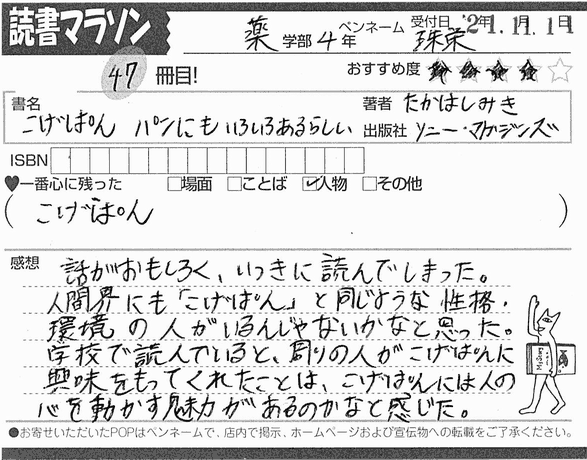 読書マラソン
薬 学部 4 年 ペンネーム 珠栄 受付日 '21年 1月 1日
47 冊目!
おすすめ度 ★★★★☆
書名 こげぱん パンにもいろいろあるらしい
著者 たかはしみき
出版社 ソニー・マガジンズ
ISBN
♥一番心に残った □場面 □ことば ☑人物 □その他
( こげぱん )
感想 話がおもしろく、いっきに読んでしまった。
人間界にも「こげぱん」と同じような性格・
環境の人がいるんじゃないかなと思った。
学校で読んでいると、周りの人がこげぱんに
興味をもってくれたことは、こげぱんには人の
心を動かす魅力があるのかなと感じた。
●お寄せいただいたPOPはペンネームで、店内で掲示、ホームページおよび宣伝物への転載をご了承ください。